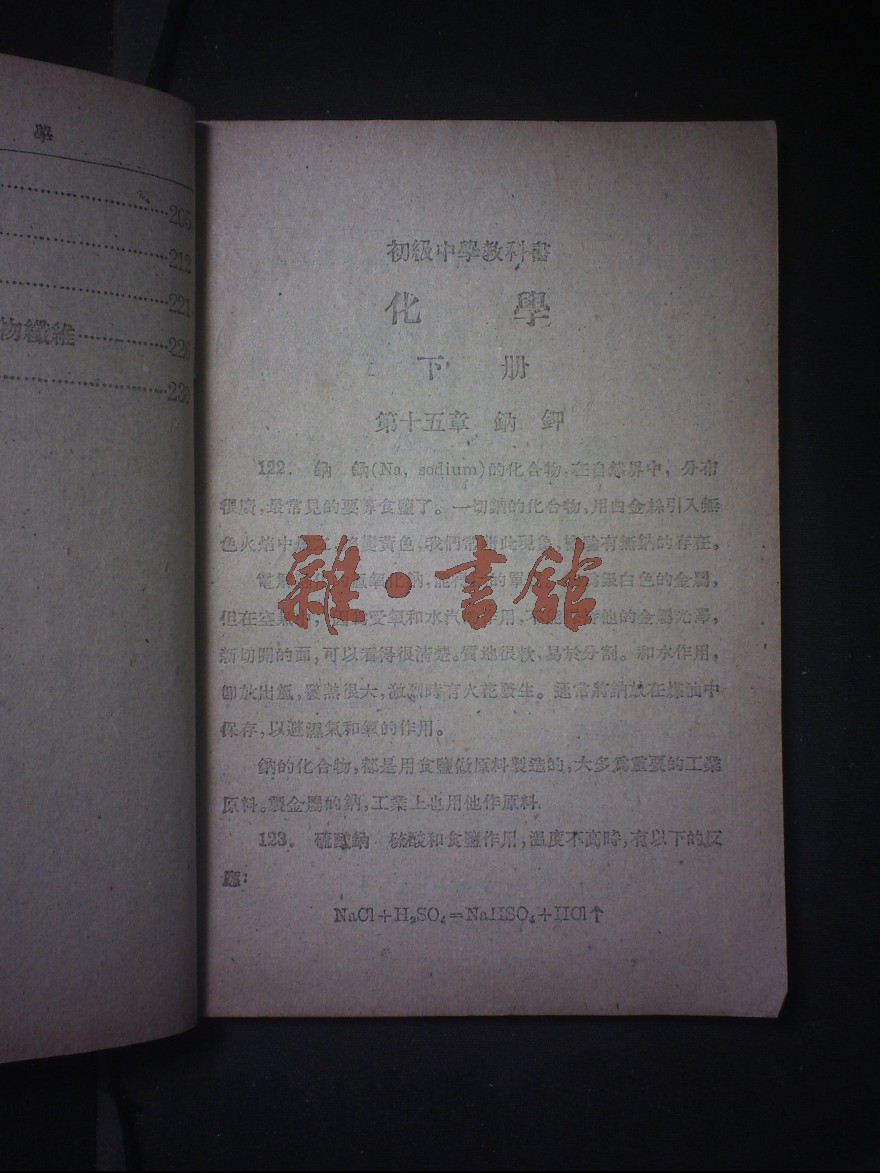 學
205
212
221
物纖維 226
230
初級中學教科書
化 學
下 册
第十五章 鈉 鉀
122. 鈉 鈉(Na, sodium)的化合物,在自然界中,分布
很廣,最常見的要算食鹽了。一切鈉的化合物,用白金絲引入無
色火焰中 黃色,我們常 此現象,檢驗有無鈉的存在。
電 氫氧化鈉, 的單 銀白色的金屬,
但在空氣中, 受氧和水汽 作用,不能 他的金屬光澤,
新切開的面,可以看得很清楚。質地很軟,易於分割。和水作用,
卽放出氫,發熱很大,激烈時有火花發生。通常將鈉放在煤油中
保存,以避濕氣和氧的作用。
鈉的化合物,都是用食鹽做原料製造的,大多爲重要的工業
原料。製金屬的鈉,工業上也用他作原料.
123. 硫酸鈉 硫酸和食鹽作用,溫度不高時,有以下的反
應:
NaCl+H₂SO₄=NaHSO₄+HCl↑
雜·書館